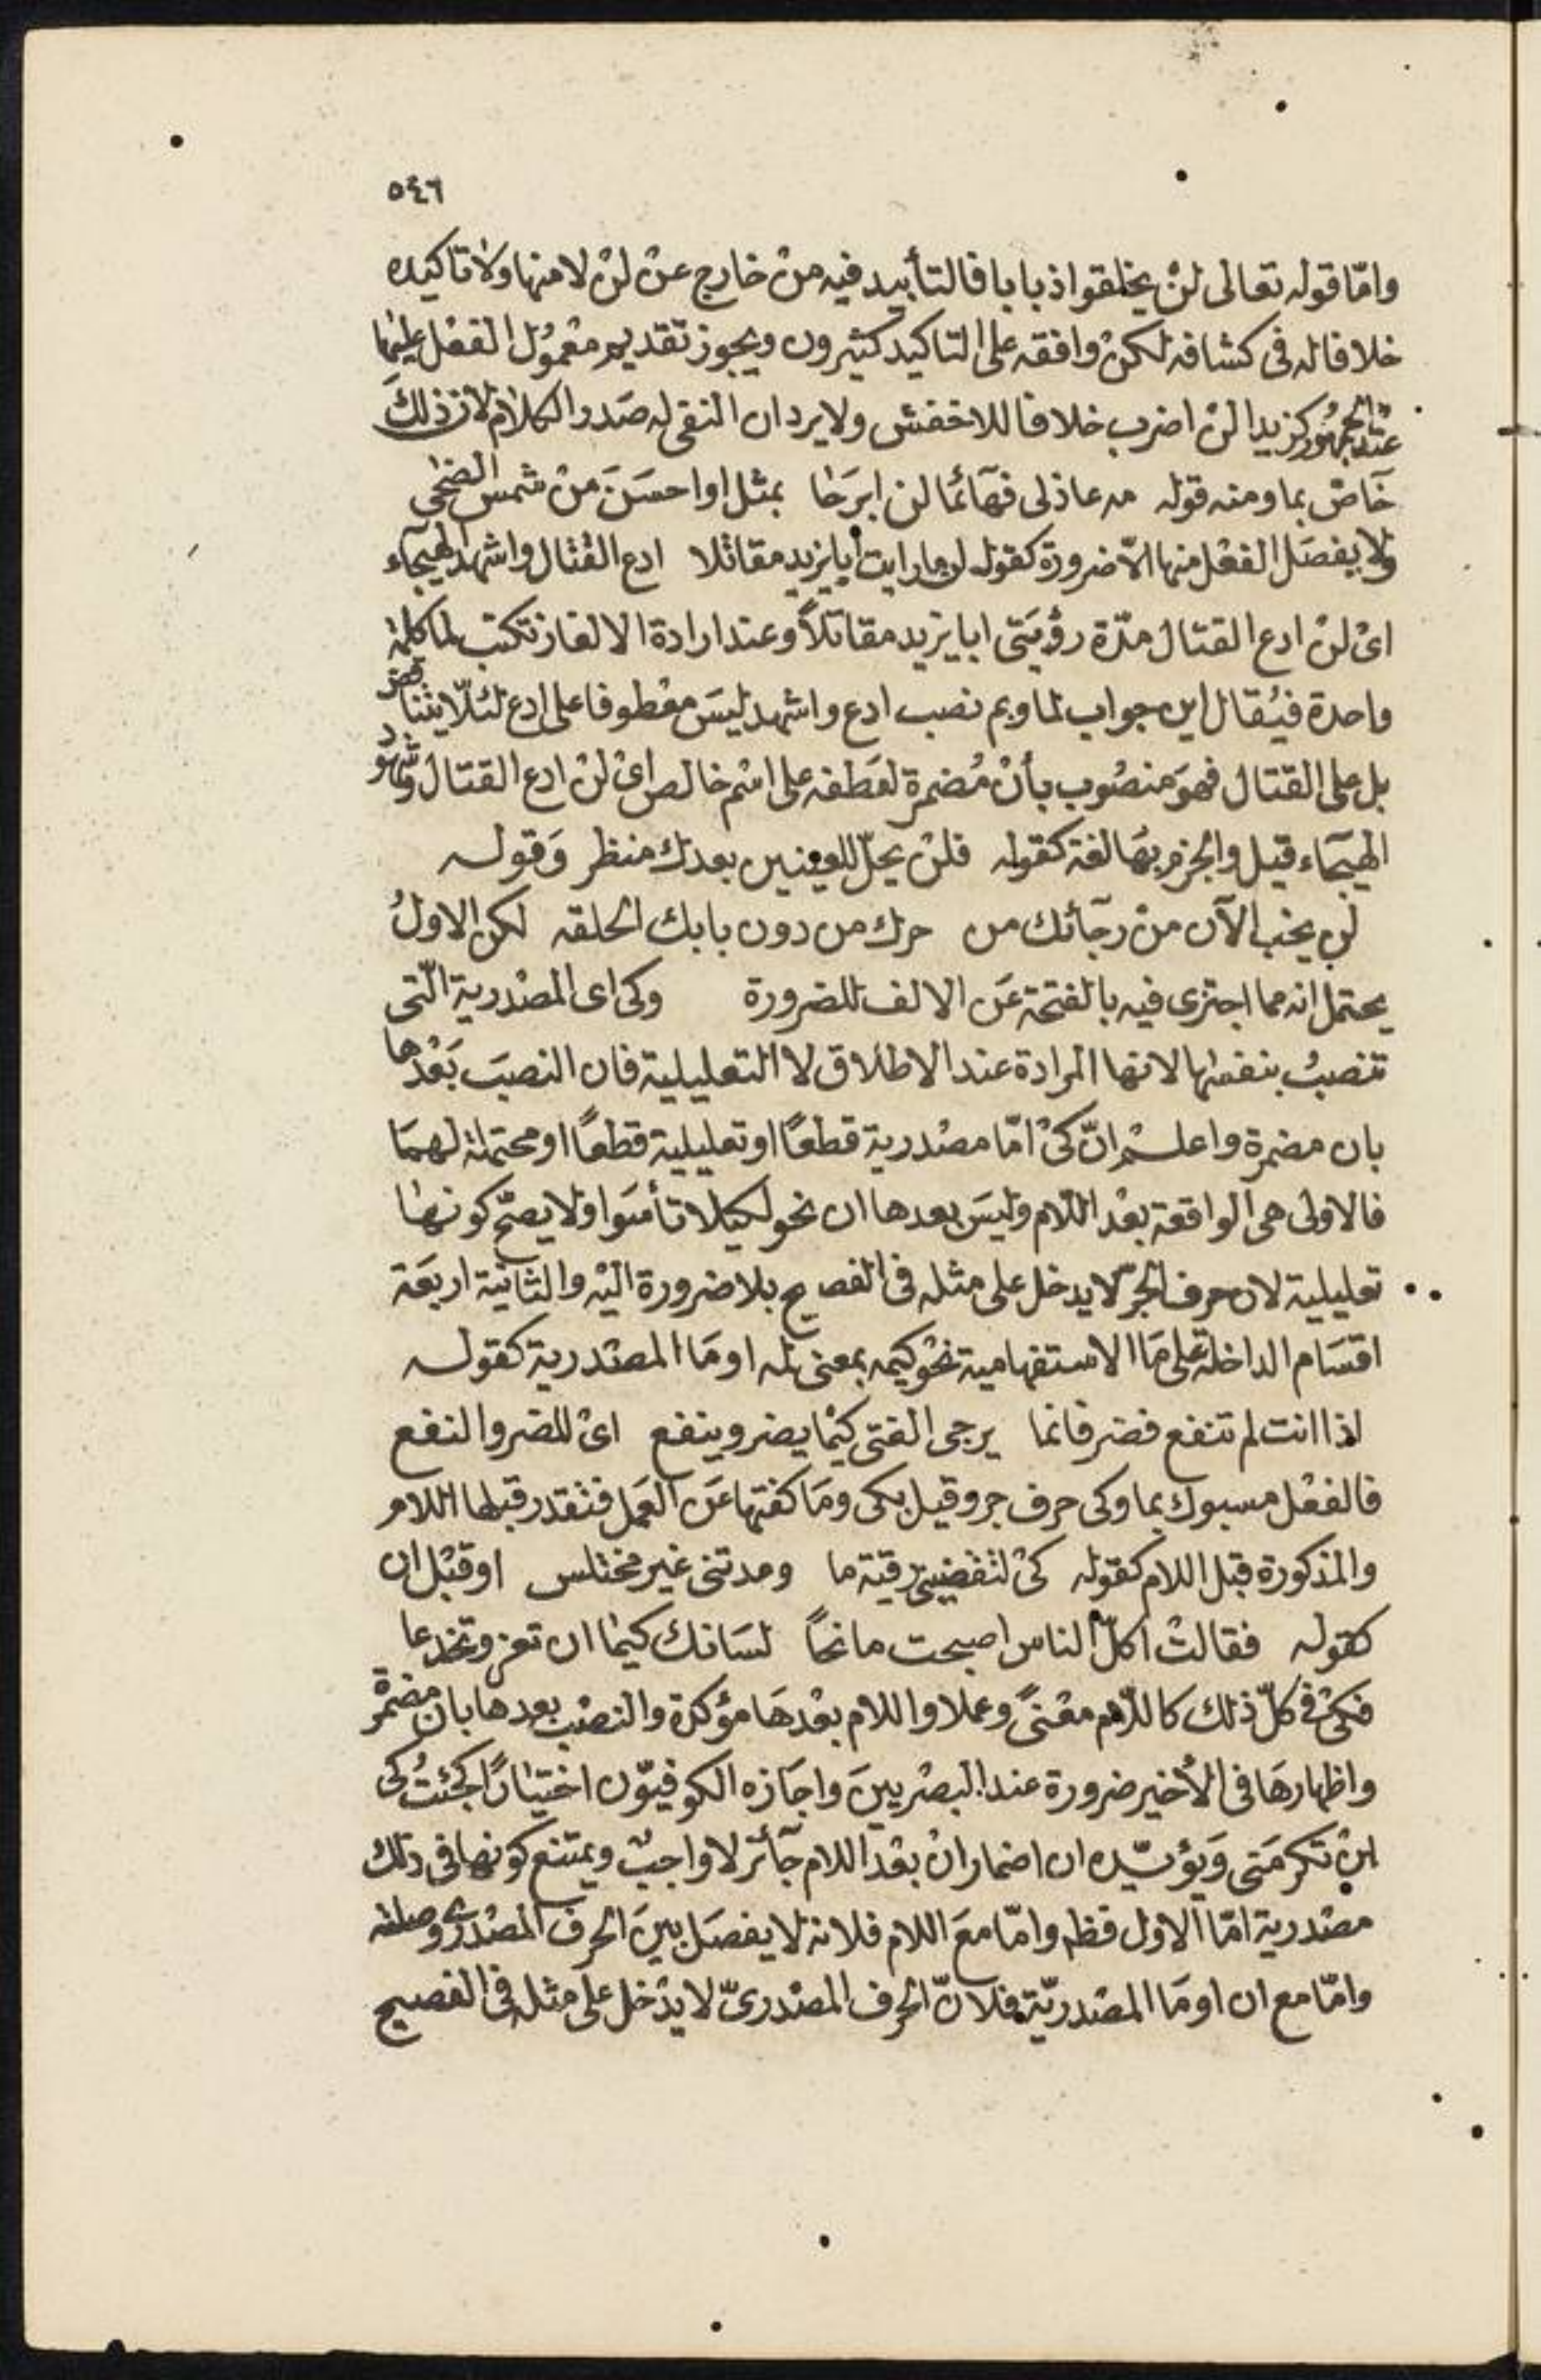 ٥٤٦
وامّا قوله تعالى لنْ يخلقوا ذبابا فالتأبيد فيه منْ خارج عنْ لنْ لا منها ولا تاكيده
خلافا له فى كشافه لكنْ وافقه على التاكيد كثيرون ويجوز تقديم معْمُول الفعْل عليْها
عنْد الجمْهُور كزيدا لنْ اضرب خلافا للاخفش ولا يرد ان النفى له صَدر الكلام لان ذلكَ
خَاصّ بما ومنه قوله مه عاذلى فهَآئمًا لن ابرَحَا بمثل او احسَنَ منْ شمس الضحى
ولا يفصَل الفعْل منها الّا ضرورة كقوله لن ما رايت أبا يزيد مقاتلا ادع القتال واشهد الهيجآء
اىْ لنْ ادع القتال مدّة رؤيَتى ابا يزيد مقاتلاً وعند ارادة الالغاز تكتب لما كلمة
واحدة فيُقال اين جواب لما وبم نصب ادع واشهد ليسَ معْطوفا على ادع لئلّا يتناقض
بل على القتال فهوَ منصُوب بأنْ مُضمرة لعَطفه على اسْم خالص اىْ لنْ ادع القتال وشهود
الهيجَآء قيل والجزم بهَا لغة كقوله فلنْ يحلّ للعينين بعدك منظر وَقوله
لن يخب الآن منْ رجَآئك من حرك من دون بابك الحلقه لكن الاولُ
يحتمل انه مما اجتزى فيه بالفتحة عَن الالف للضرورة وكى اى المصْدرية الّتى
تنصبُ بنفسْها لانها المرادة عند الاطلاق لا التعليلية فان النصبَ بَعْدها
بان مضمرة واعلــمْ انّ كىْ امّا مصْدرية قطعًا او تعليلية قطعًا او محتملة لهمَا
فالاولى هى الواقعة بعْد اللّام وليسَ بعدها ان نحو لكيلا تأسَوا ولا يصحّ كونها
تعليلية لان حرف الجرّ لا يدخل على مثله فى الفصيح بلا ضرورة اليْه والثانيَة اربعَة
اقسَام الداخلة على مَا الاستفهامية نحْو كيمه بمعنى له او مَا المصْدرية كقوله
اذا انت لم تنفع فضر فانما يرجى الفتى كيْما يضر وينفع اىْ للضر والنفع
فالفعْل مسبوك بما وكى حرف جر وقيل بكى ومَا كفتها عَن العَمل فتقدر قبلها اللام
والمذكورة قبل اللام كقوله كىْ لتقضينى رقية ما ومدتنى غير مختلس او قبْل ان
كقوله فقالتْ اكلّ الناس اصبحت مانحًا لسَانك كيمَا ان تغر وتخدعا
فكىْ فى كلّ ذلك كاللّام معْنىً وعملا واللام بعْدهَا مؤكدة والنصْب بعدها بان مضمرة
واظهارهَا فى الأخير ضرورة عند البصْريينَ واجَازه الكوفيوّن اختيارًا كجئتُ كى
ان تكرمَنى وَيؤيّده ان اضمار انْ بعْد اللام جآئز لا واجبٌ ويمتنع كونها فى ذلك
مصْدرية امّا الاول فظه وامّا معَ اللام فلانه لا يفصَل بينَ الحرف المصْدرى وصلته
وامّا مع ان او مَا المصْدريّة فلانّ الحرف المصْدرىّ لا يدْخل على مثله فى الفصيح